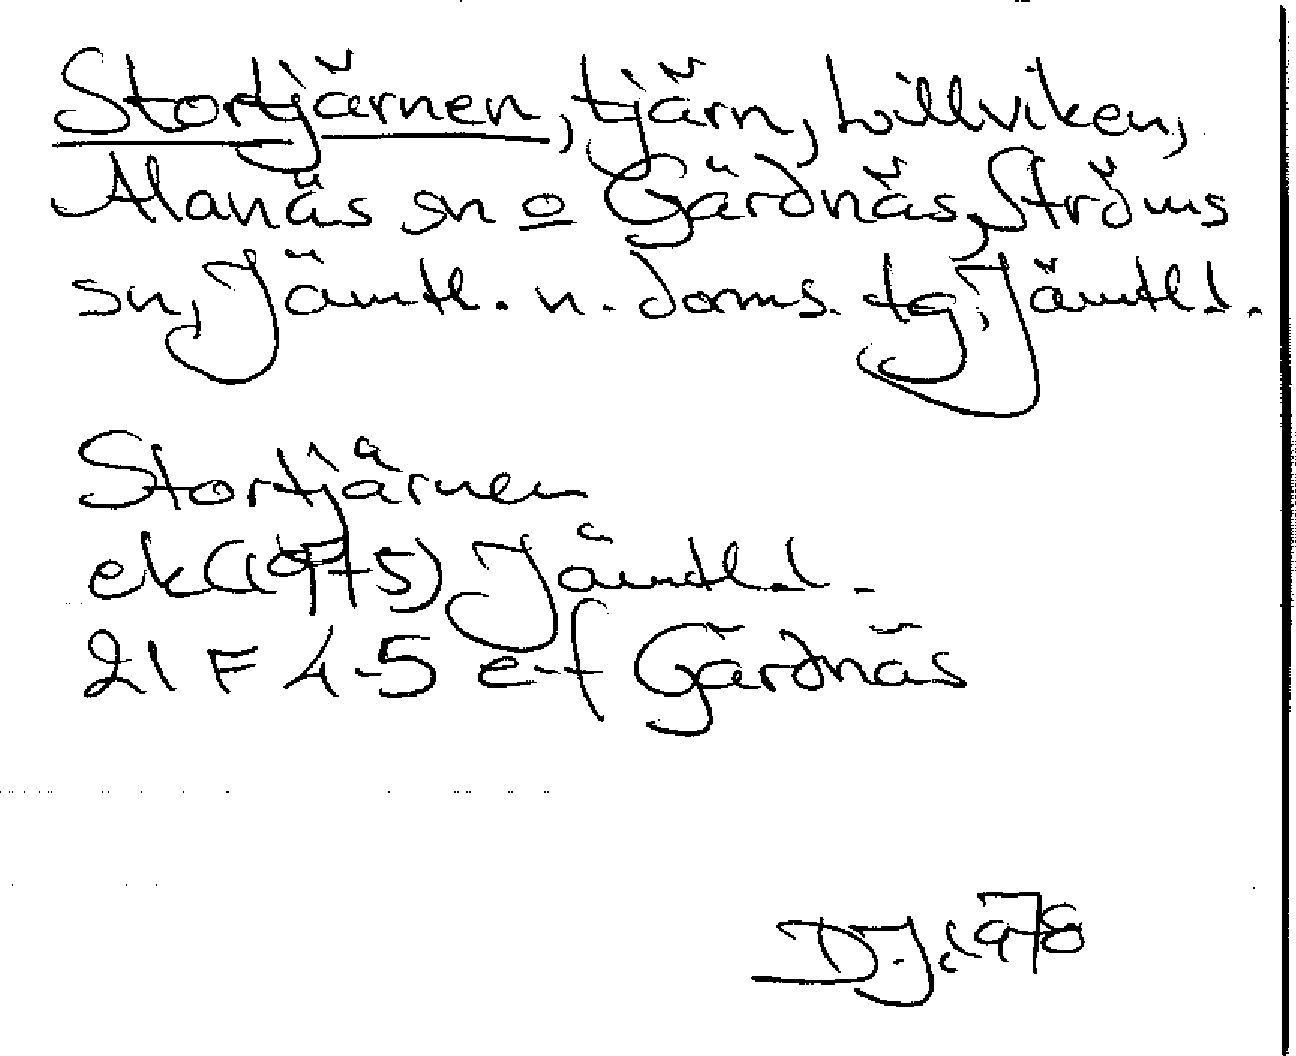 Stortjärnen, tjärn, Lillviken,
Alanäs sn o Gärdnäs, Ströms
sn, Jämtl. n. doms. tg, Jämtl l.
Stortjärnen
ek (1975) Jämtl l.
21 F 4-5 e-f Gärdnäs
D.J. 1978